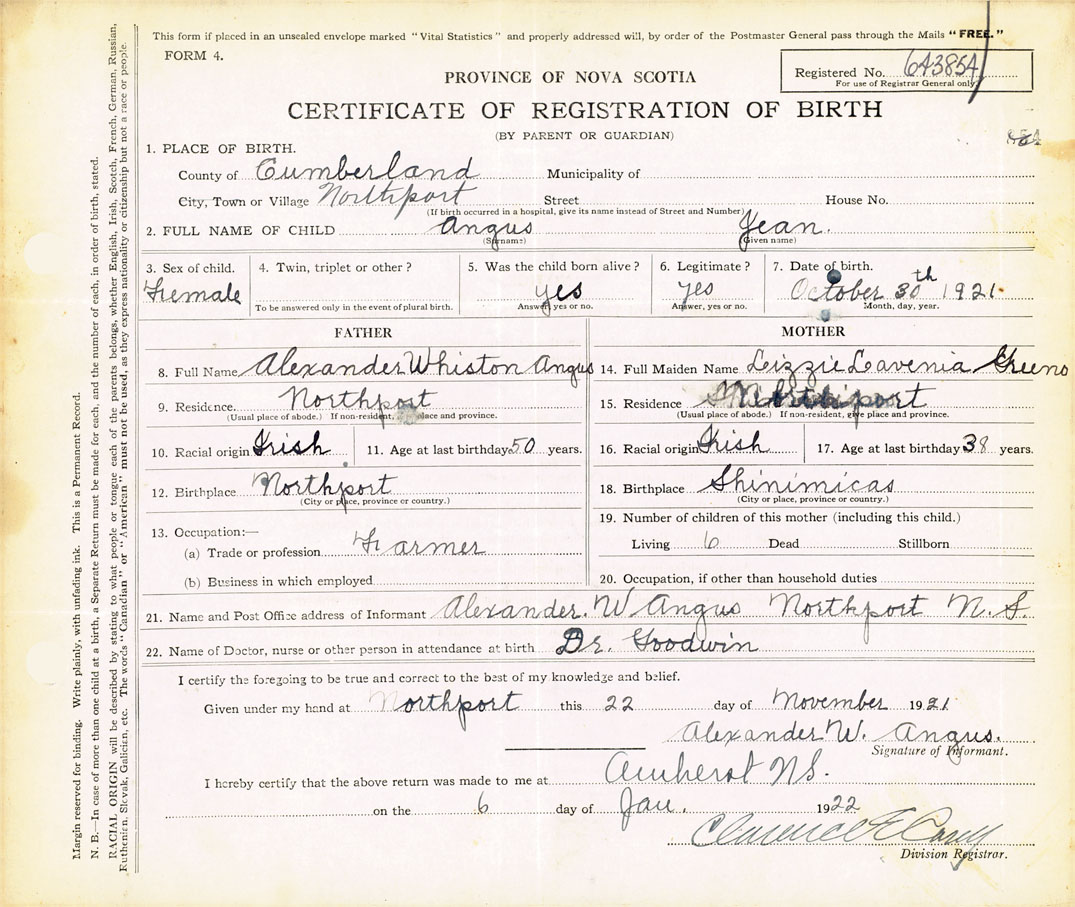 This form if placed in an unsealed envelope marked "Vital Statistics" and properly addressed will, by order of the Postmaster General pass through the Mails "FREE."
FORM 4.
Registered No. 64385A
For use of Registrar General only
PROVINCE OF NOVA SCOTIA
CERTIFICATE OF REGISTRATION OF BIRTH
(BY PARENT OR GUARDIAN)
1. PLACE OF BIRTH.
County of Cumberland Municipality of
City, Town or Village Northport Street House No.
(If birth occurred in a hospital, give its name instead of Street and Number)
2. FULL NAME OF CHILD Angus Jean.
(Surname) (Given name)
3. Sex of child. 4. Twin, triplet or other? 5. Was the child born alive? 6. Legitimate? 7. Date of birth.
Female yes yes October 30th 1921.
To be answered only in the event of plural birth. Answer yes or no. Answer, yes or no. Month, day, year.
FATHER
8. Full Name Alexander Whiston Angus
9. Residence. Northport
(Usual place of abode.) If non-resident, place and province.
10. Racial origin Irish 11. Age at last birthday 50 years.
12. Birthplace Northport
(City or place, province or country.)
13. Occupation:—
(a) Trade or profession Farmer
(b) Business in which employed
MOTHER
14. Full Maiden Name Lizzie Lavenia Greeno
15. Residence Northport
(Usual place of abode.) If non-resident, give place and province.
16. Racial origin Irish 17. Age at last birthday 38 years.
18. Birthplace Shinimicas
(City or place, province or country.)
19. Number of children of this mother (including this child.)
Living 6 Dead Stillborn
20. Occupation, if other than household duties
21. Name and Post Office address of Informant Alexander. W Angus Northport N. S.
22. Name of Doctor, nurse or other person in attendance at birth Dr. Goodwin
I certify the foregoing to be true and correct to the best of my knowledge and belief.
Given under my hand at Northport this 22 day of November 1921
Alexander W. Angus.
Signature of Informant.
I hereby certify that the above return was made to me at Amherst NS.
on the 6 day of Jan. 1922
Clarence E Casey
Division Registrar.
Margin reserved for binding. Write plainly, with unfading ink. This is a Permanent Record.
N. B.—In case of more than one child at a birth, a Separate Return must be made for each, and the number of each, in order of birth, stated.
RACIAL ORIGIN will be described by stating to what people or tongue each of the parents belongs, whether English, Irish, Scotch, French, German, Russian,
Ruthenian, Slovak, Galician, etc. The words "Canadian" or "American" must not be used, as they express nationality or citizenship but not a race or people.